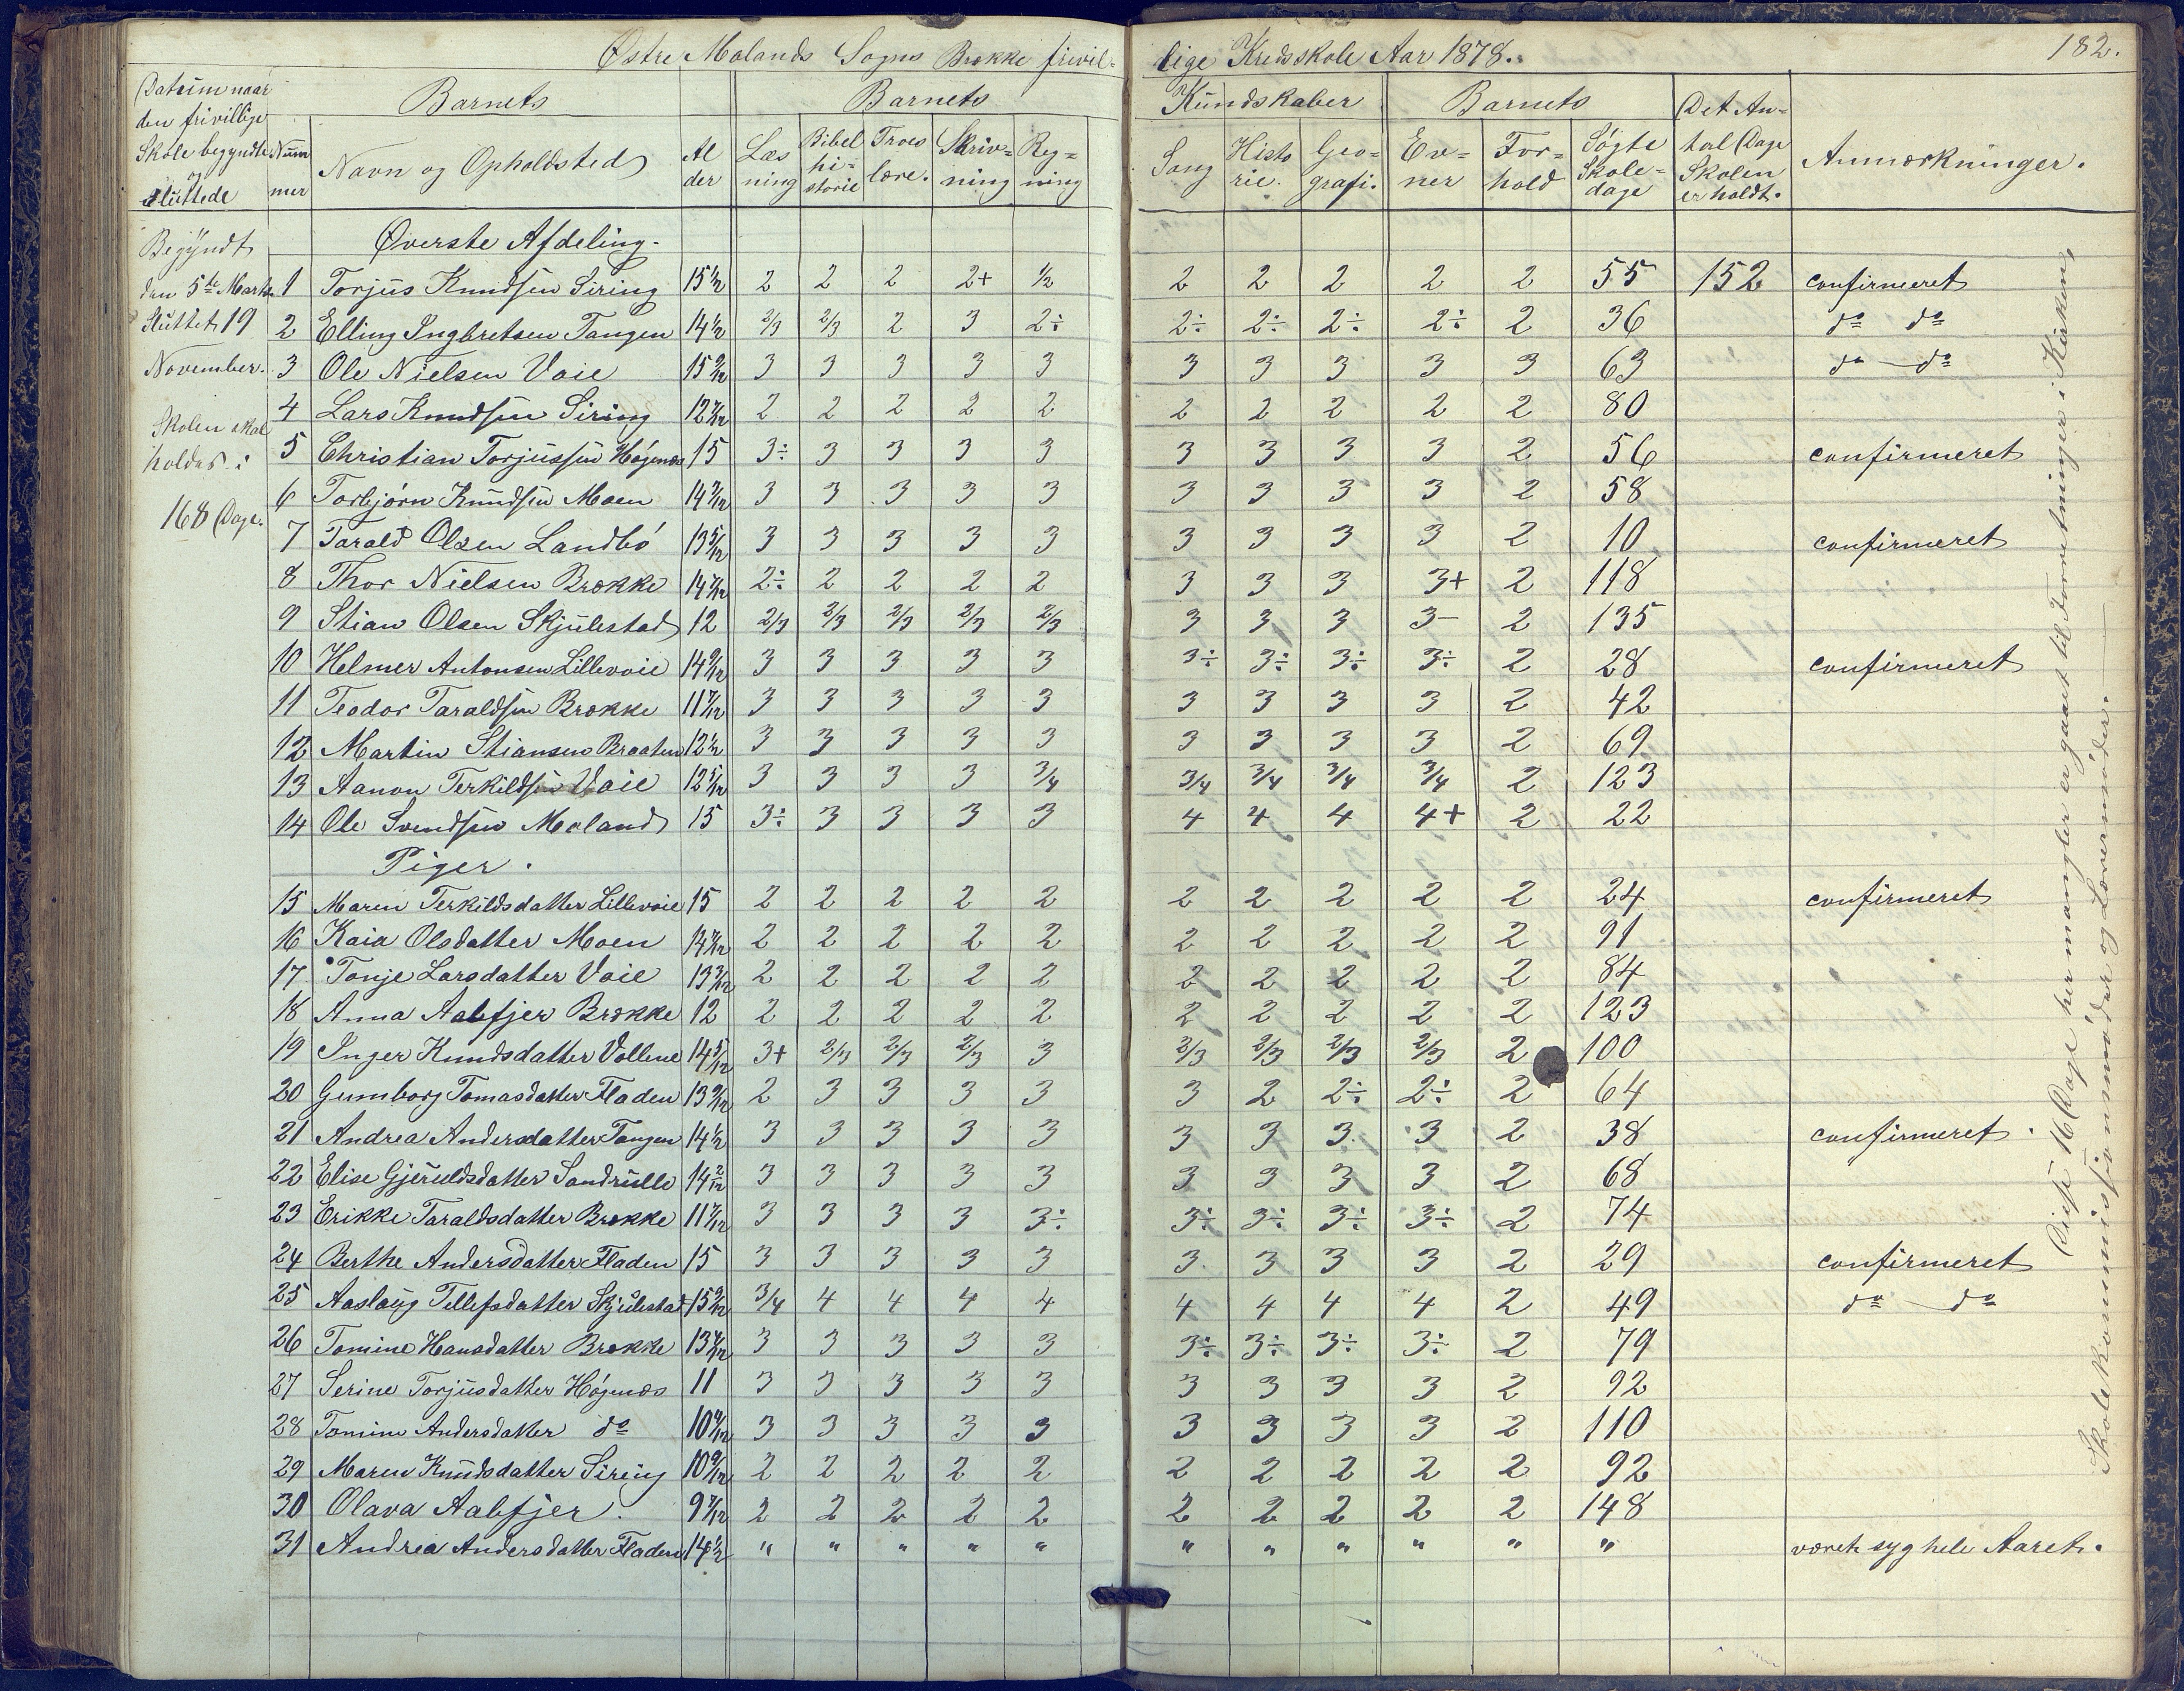 Østre Molands Sogns Brække frivil-
lige Kredsskole Aar 1878.
182.
Datum naar den frivillige Skole begyndte og sluttede
Nummer
Barnets
Navn og Opholdsted
Alder
Barnets
Læsning
Bibelhistorie
Troeslære.
Skrivning
Regning
Kundskaber
Sang
Historie.
Geografi.
Barnets
Evner
Forhold
Søgte Skoledage
Det Antal Dage Skolen er holdt.
Anmærkninger.
Begyndt
den 5te Marts
Sluttet 19
November.
Skolen skal
holdes i
168 Dage.
Øverste Afdeling.
1 Torjus Knudsen Siring 15 1/2 2 2 2 2+ 1/2 2 2 2 2 2 55 152 confirmeret
2 Elling Ingbretsen Tangen 14 1/2 2/3 2/3 2 3 2÷ 2÷ 2÷ 2÷ 2÷ 2 36 do do
3 Ole Nielsen Vaie 15 3 3 3 3 3 3 3 3 3 3 63 do do
4 Lars Knudsen Siring 12 2 2 2 2 2 2 2 2 2 2 80
5 Christian Torjussen Høgenæs 15 3÷ 3 3 3 3 3 3 3 3 2 56 confirmeret
6 Torbjørn Knudsen Moen 14 3 3 3 3 3 3 3 3 3 2 58
7 Tarald Olsen Landbø 13 5/12 3 3 3 3 3 3 3 3 3 2 10 confirmeret
8 Thor Nielsen Brække 14 2÷ 2 2 2 2 3 3 3 3+ 2 118
9 Stian Olsen Skjulestad 12 2/3 2/3 2/3 2/3 2/3 3 3 3 3- 2 135
10 Helmer Antonsen Lillevaie 14 3 3 3 3 3 3÷ 3÷ 3÷ 3÷ 2 28 confirmeret
11 Teodor Taraldsen Brække 11 7/12 3 3 3 3 3 3 3 3 3 2 42
12 Martin Stiansen Braaten 12 1/2 3 3 3 3 3 3 3 3 3 2 69
13 Aanon Terkildsen Vaie 12 5/12 3 3 3 3 3/4 3/4 3/4 3/4 3/4 2 123
14 Ole Svendsen Moland 15 3÷ 3 3 3 3 4 4 4 4+ 2 22
Piger.
15 Maren Terkildsdatter Lillevaie 15 2 2 2 2 2 2 2 2 2 2 24 confirmeret
16 Kaia Olsdatter Moen 14 2 2 2 2 2 2 2 2 2 2 91
17 Tonje Larsdatter Vaie 13 2 2 2 2 2 2 2 2 2 2 84
18 Anna Aalefjer Brække 12 2 2 2 2 2 2 2 2 2 2 123
19 Inger Knudsdatter Vollene 14 5/12 3+ 2/3 2/3 2/3 3 2/3 2/3 2/3 2/3 2 100
20 Gumborg Tomasdatter Fladen 13 2 3 3 3 3 3 2 2÷ 2÷ 2 64
21 Andrea Andersdatter Tangen 14 1/2 3 3 3 3 3 3 3 3 3 2 38 confirmeret
22 Elise Gjeruldsdatter Sandrulle 14 2/12 3 3 3 3 3 3 3 3 3 2 68
23 Erikke Taraldsdatter Brække 11 7/12 3 3 3 3 3÷ 3÷ 3÷ 3÷ 3÷ 2 74
24 Berthe Andersdatter Fladen 15 3 3 3 3 3 3 3 3 3 2 29 confirmeret
25 Aaslaug Tellefsdatter Skjulestad 15 3/4 4 4 4 4 4 4 4 4 2 49 do do
26 Tomine Hansdatter Brække 13 3 3 3 3 3 3÷ 3÷ 3÷ 3÷ 2 79
27 Serine Torjusdatter Høgenæs 11 3 3 3 3 3 3 3 3 3 2 92
28 Tomine Andersdatter do 10 3 3 3 3 3 3 3 3 3 2 110
29 Maren Knudsdatter Siring 10 2 2 2 2 2 2 2 2 2 2 92
30 Olava Aalefjer. 9 7/12 2 2 2 2 2 2 2 2 2 2 148
31 Andrea Andersdatter Fladen 14 1/2 " " " " " " " " " " " været syg hele Aaret.
Disse 16 Dage her mangler er gaaet til Forretninger i Kirken,
Skolekommissjonsmøder og Læreremøder.